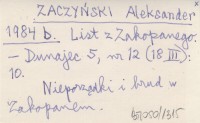 ZACZYŃSKI Aleksander
1984 b. List z Zakopanego.
– Dunajec 5, nr 12 (18 III):
10.
Nieporządki i brud w
Zakopanem.